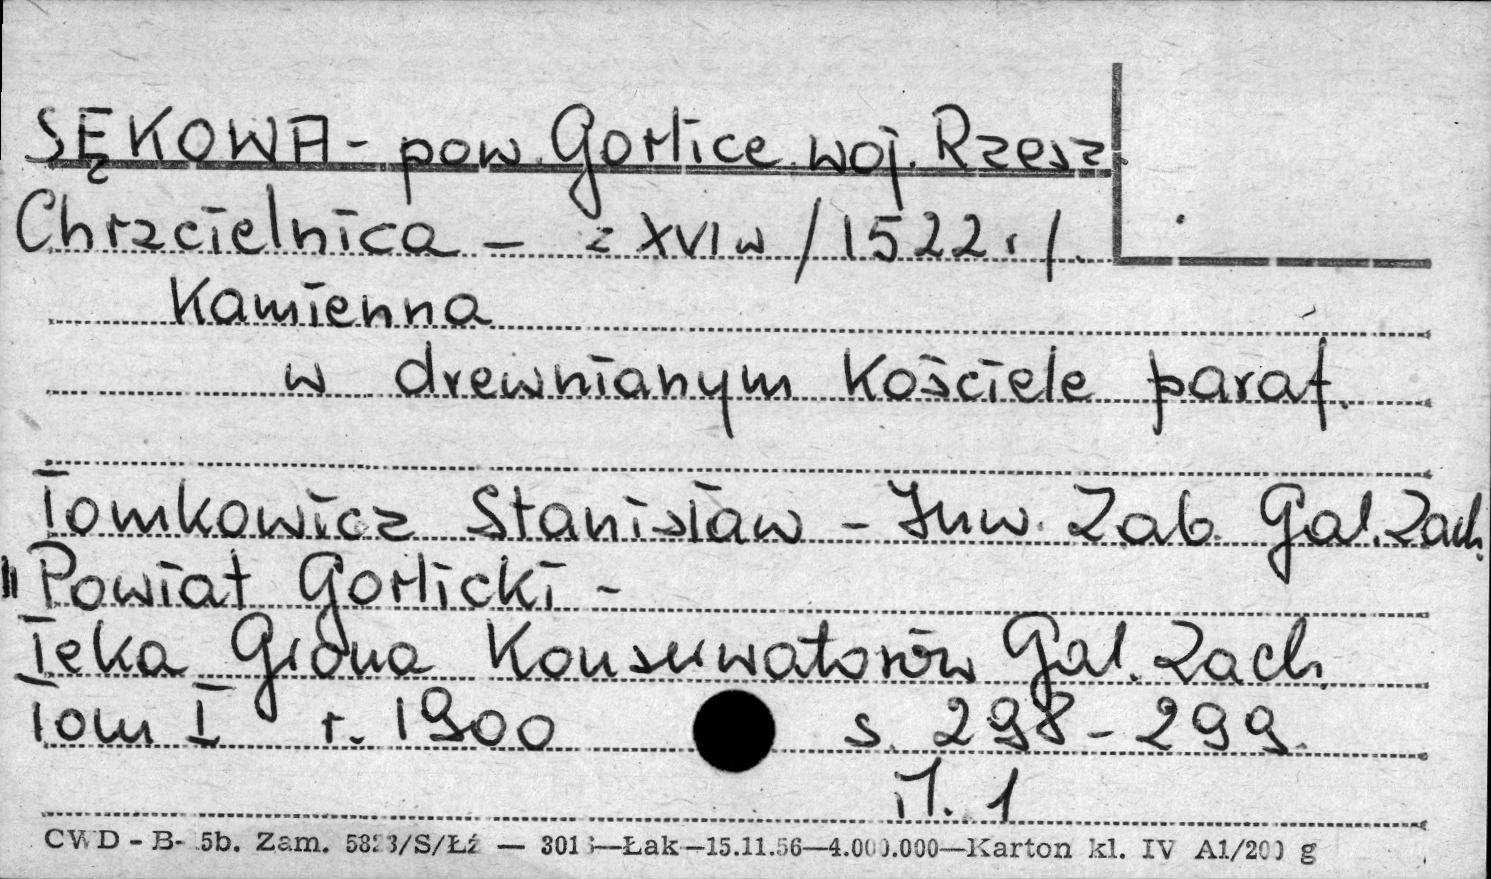 SĘKOWA - pow. Gorlice woj. Rzesz.
Chrzcielnica - z XVI w /1522 r/.
Kamienna
w drewnianym Kościele paraf.
Tomkowicz Stanisław - Inw. Zab. Gal. Zach.
"Powiat Gorlicki -
Teka Grona Konserwatorów Gal. Zach.
Tom I r. 1900 s. 298-299.
il. 1
CWD - B- 5b. Zam. 5823/S/Łź — 3016—Łak—15.11.56—4.000.000—Karton kl. IV A1/200 g